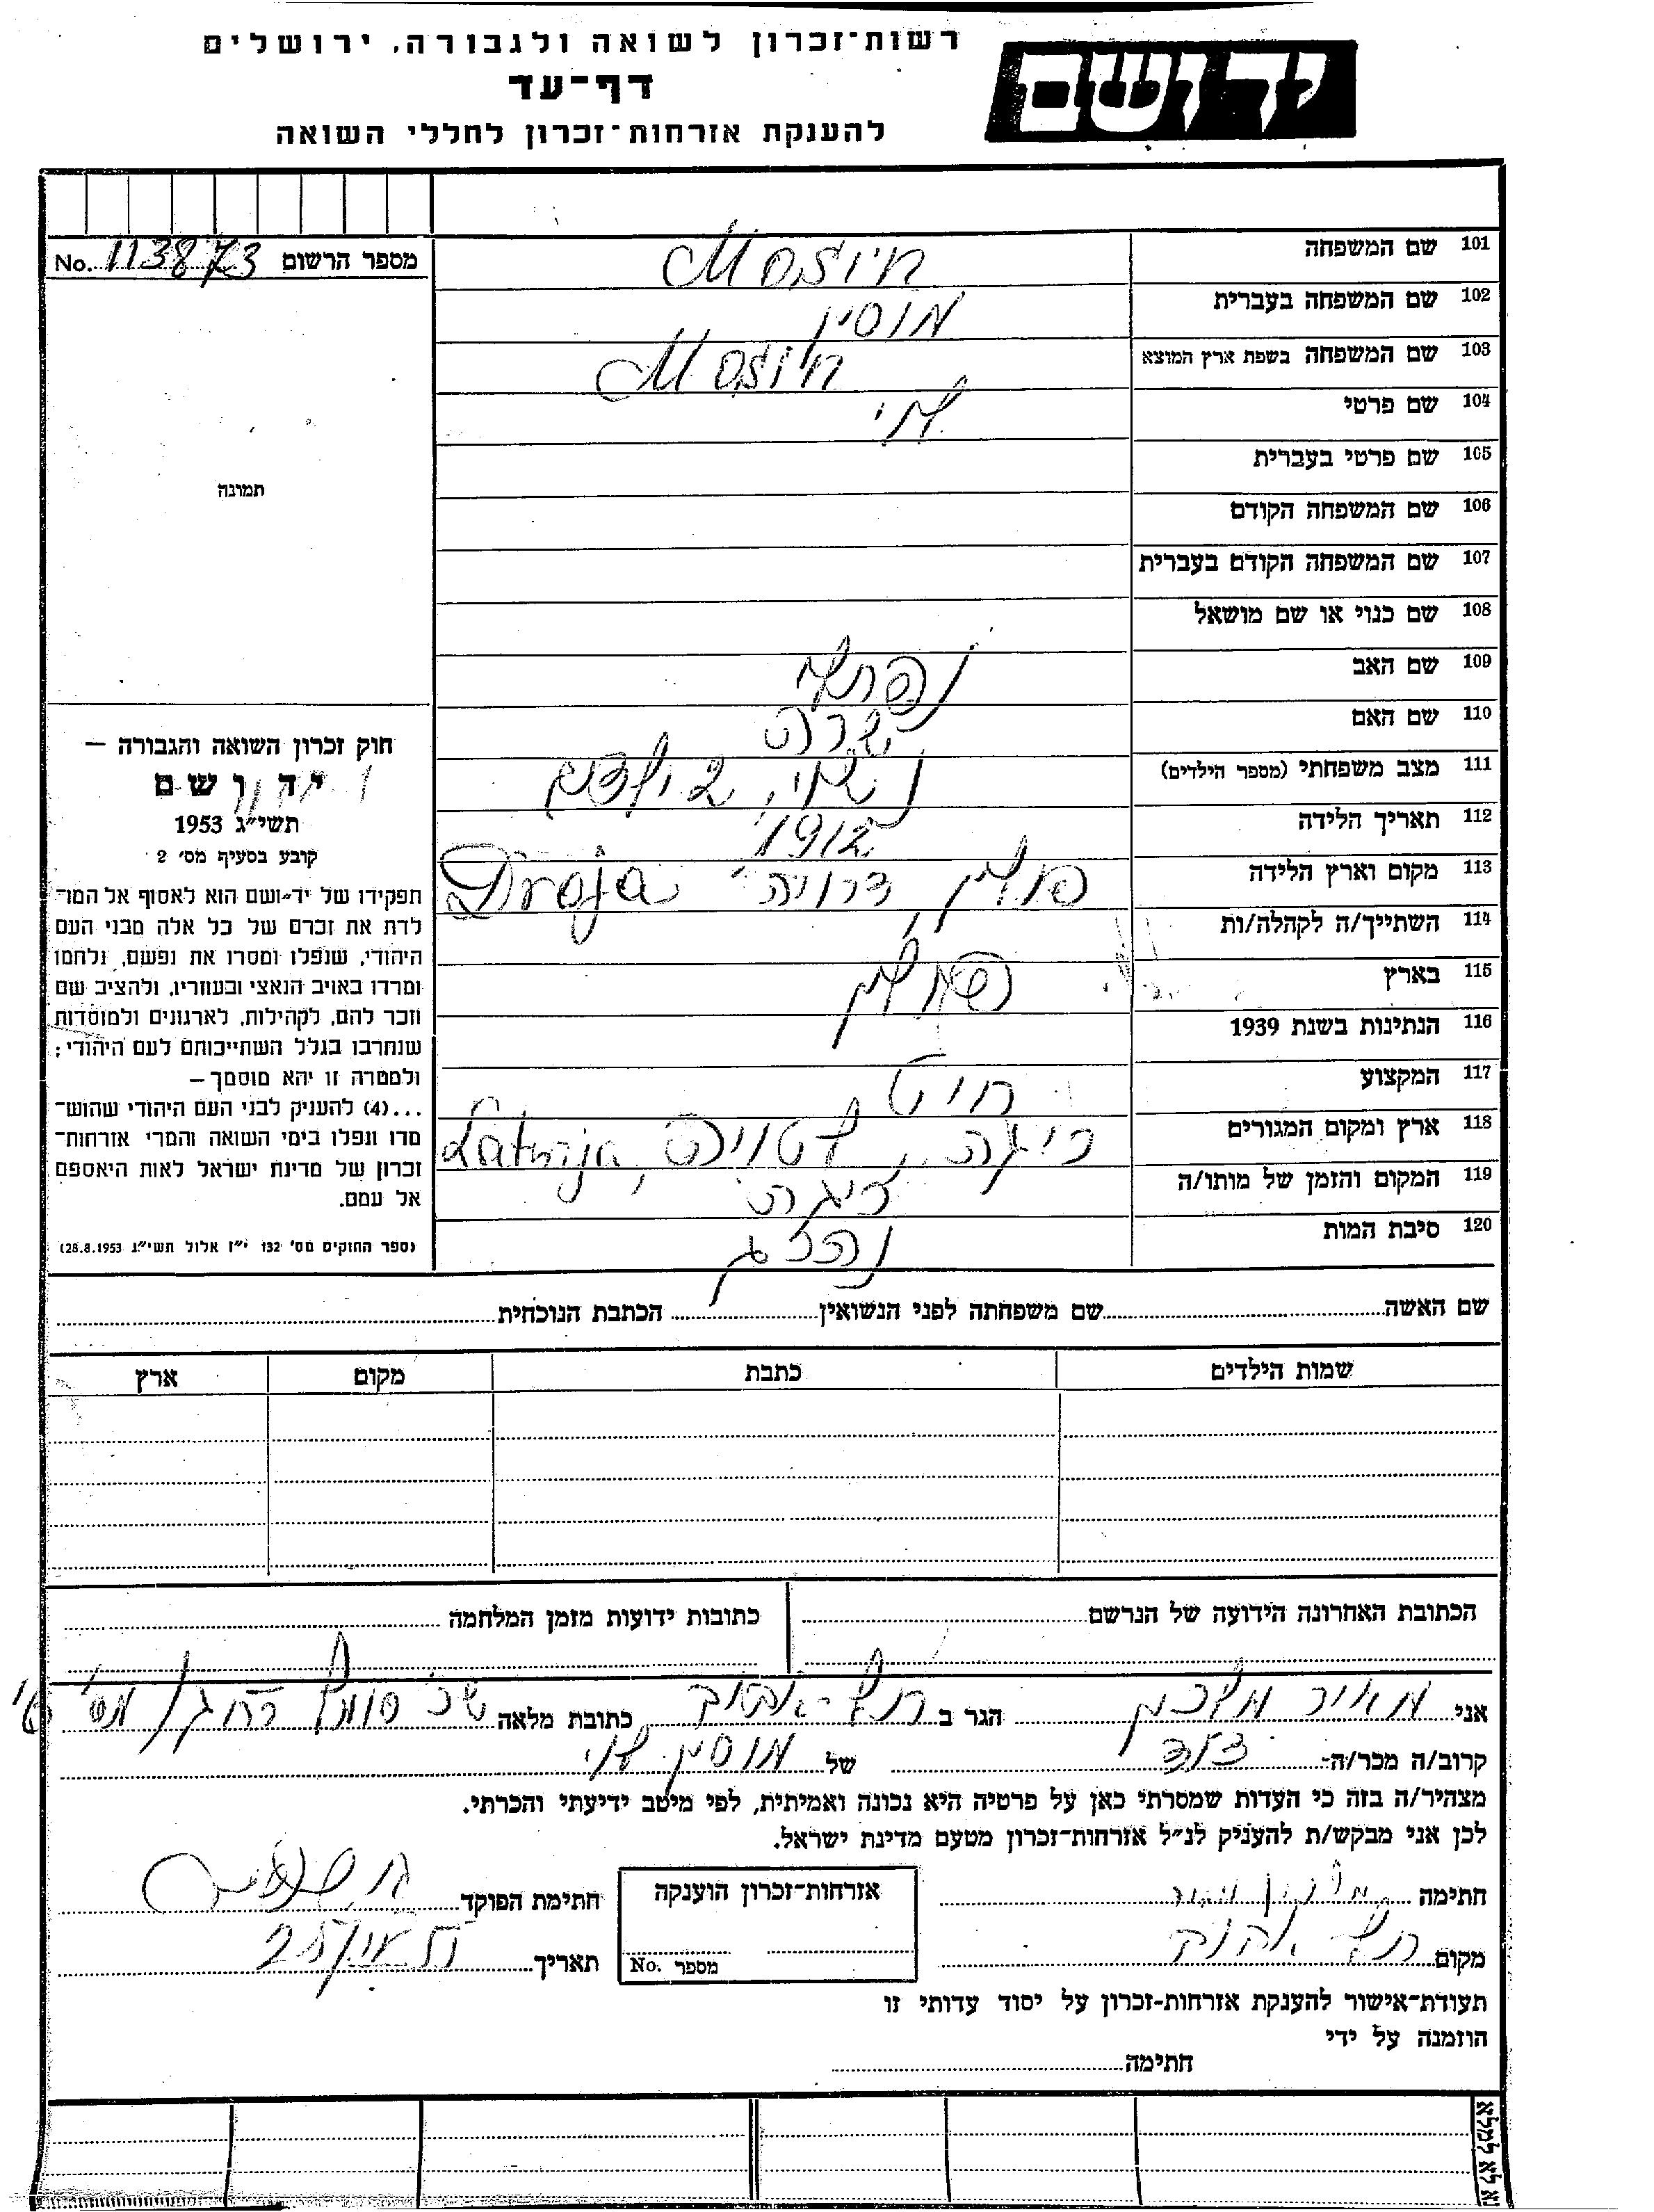 רשות־זכרון לשואה ולגבורה, ירושלים
דף־עד
להענקת אזרחות־זכרון לחללי השואה
יד ושם
101 שם המשפחה Mosin
מספר הרשום 113873 No.
102 שם המשפחה בעברית מוסין
103 שם המשפחה בשפת ארץ המוצא Mosin
104 שם פרטי
105 שם פרטי בעברית
תמונה
106 שם המשפחה הקודם
107 שם המשפחה הקודם בעברית
108 שם כנוי או שם מושאל
109 שם האב
110 שם האם שרה
111 מצב משפחתי (מספר הילדים) נשוי, 2 ילדים
112 תאריך הלידה 1912
113 מקום וארץ הלידה פולין, דרויה Druja
114 השתייך/ה לקהלה/ות
115 בארץ פולין
116 הנתינות בשנת 1939
117 המקצוע חיט
118 ארץ ומקום המגורים ריגה, לטויה Latvija
119 המקום והזמן של מותו/ה ריגה
120 סיבת המות נהרג
חוק זכרון השואה והגבורה —
יד ושם
תשי״ג 1953
קובע בסעיף מס׳ 2
תפקידו של יד־ושם הוא לאסוף אל המו־
לדת את זכרם של כל אלה מבני העם
היהודי, שנפלו ומסרו את נפשם, נלחמו
ומרדו באויב הנאצי ובעוזריו, ולהציב שם
וזכר להם, לקהילות, לארגונים ולמוסדות
שנחרבו בגלל השתייכותם לעם היהודי;
ולמטרה זו יהא מוסמך—
...(4) להעניק לבני העם היהודי שהוש־
מדו ונפלו בימי השואה והמרי אזרחות־
זכרון של מדינת ישראל לאות היאספם
אל עמם.
(ספר החוקים מס׳ 132 י״ז אלול תשי״ג 28.8.1953)
שם האשה שם משפחתה לפני הנשואין הכתבת הנוכחית
שמות הילדים כתבת מקום ארץ
הכתובת האחרונה הידועה של הנרשם כתובות ידועות מזמן המלחמה
אני מאיר הגר ב תל־אביב כתובת מלאה
קרוב/ה מכר/ה־ דוד של מוסין
מצהיר/ה בזה כי העדות שמסרתי כאן על פרטיה היא נכונה ואמיתית, לפי מיטב ידיעתי והכרתי.
לכן אני מבקש/ת להעניק לנ״ל אזרחות־זכרון מטעם מדינת ישראל.
חתימה אזרחות־זכרון הוענקה חתימת הפוקד
מקום תל אביב מספר No. תאריך
תעודת־אישור להענקת אזרחות־זכרון על יסוד עדותי זו
הוזמנה על ידי
חתימה
נא לא למלא